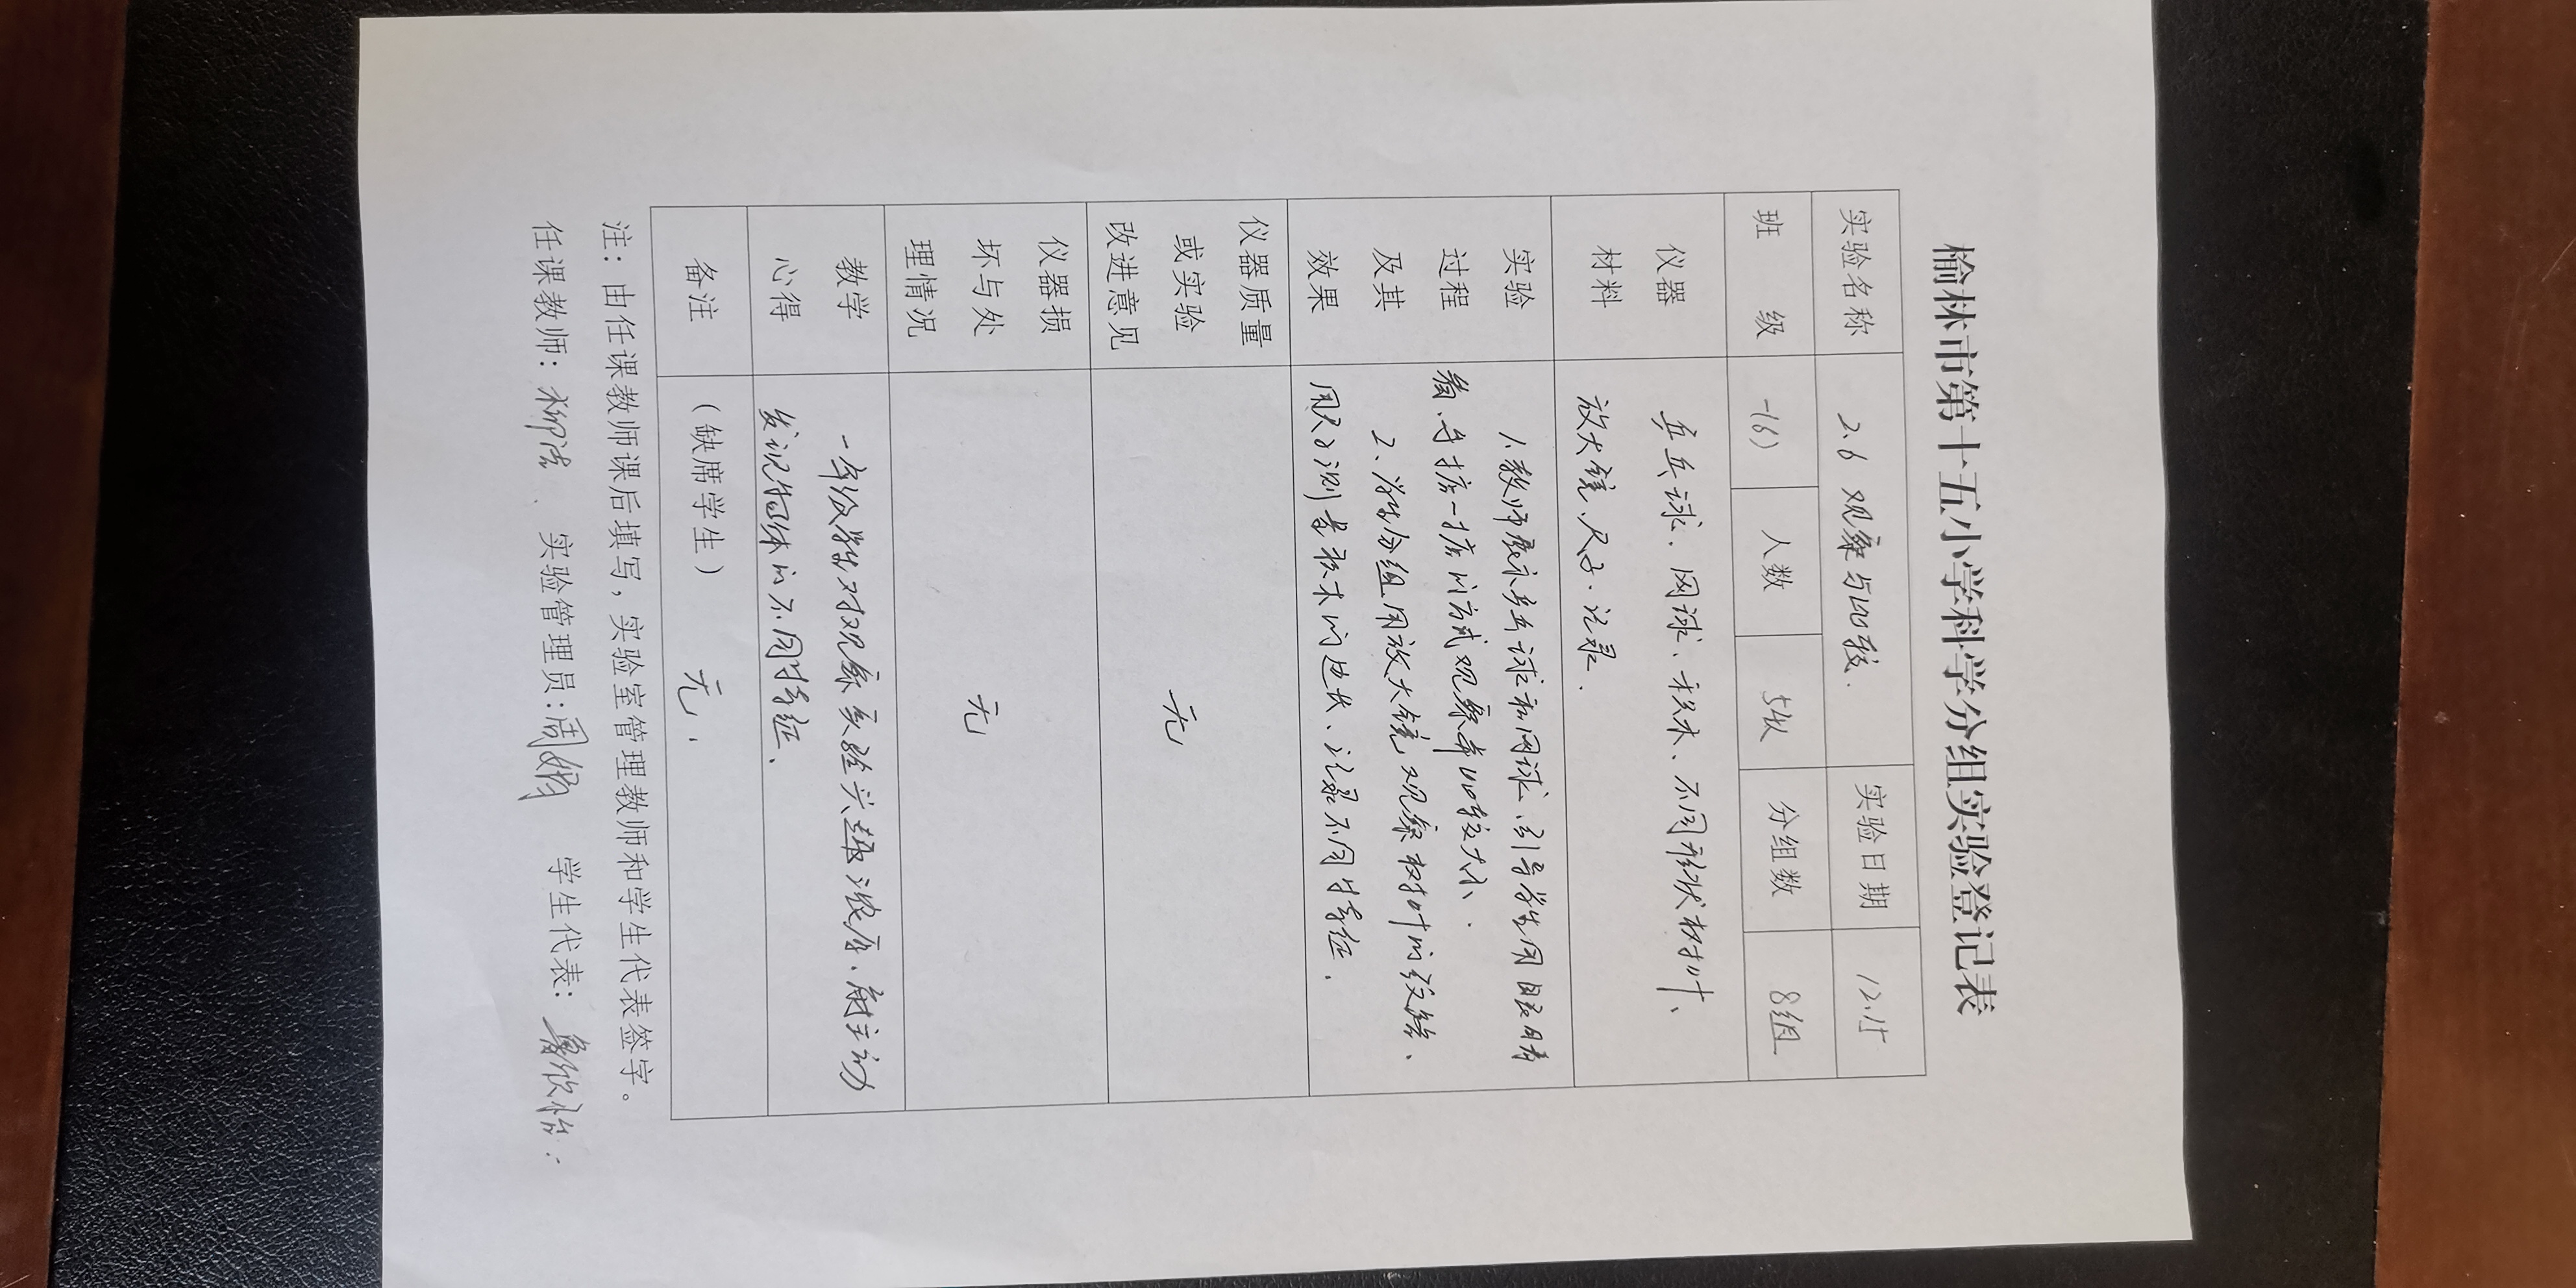 榆林市第十五小学科学分组实验登记表
实验名称 2.6 观察与比较. 实验日期 12.15
班 级 一(6) 人数 54 分组数 8组
仪器
材料
乒乓球、网球、积木、不同形状树叶、
放大镜、尺子、记录.
实验
过程
及其
效果
1.教师展示乒乓球和网球、引导学生用眼睛
看、手掂一掂的方式观察并比较大小.
2、学生分组用放大镜观察树叶的纹路、
用尺子测量积木的边长、记录不同特征.
仪器质量
或实验
改进意见
无
仪器损
坏与处
理情况
无
教学
心得
一年级学生对观察实验兴趣浓厚、能主动
发现物体的不同特征、
备注
(缺席学生) 无.
注：由任课教师课后填写，实验室管理教师和学生代表签字。
任课教师: 柳 、 实验管理员:周娟 学生代表: 鲁欣怡.